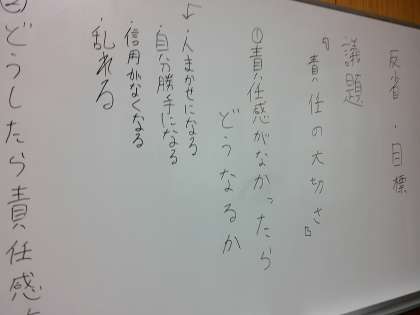 反省・目標
議題
『責任の大切さ』
①責任感がなかったら
どうなるか
↓・人まかせになる
・自分勝手になる
・信用がなくなる
・乱れる
②どうしたら責任感